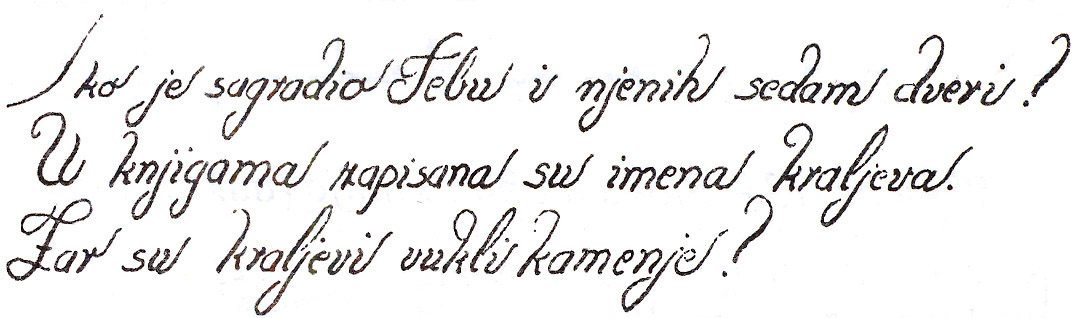 Ko je sagradio Tebu i njenih sedam dveri?
U knjigama zapisana su imena kraljeva.
Zar su kraljevi vukli kamenje?